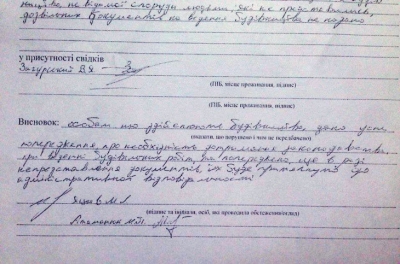 ництва не видимої споруди людьми, які не представились,
дозвільних документів на ведення будівництва не надано
у присутності свідків
Загурський В.Я.
(ПІБ, місце проживання, підпис)
(ПІБ, місце проживання, підпис)
Висновок: особам що здійснюють будівництво, дано усне
(вказати, що порушено і чим не передбачено)
попередження про необхідність дотримання законодавства
при веденні будівельних робіт, та попереджено, що в разі
непредставлення документів, їх буде притягнуто до
адміністративної відповідальності
М.А.
(підпис та ініціали, осіб, які проводили обстеження/огляд)